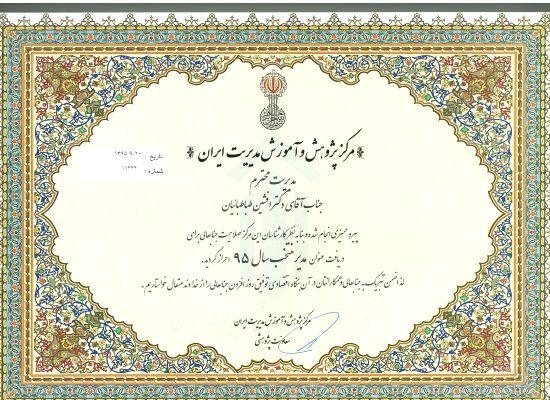 مرکز پژوهش و آموزش مدیریت ایران
تاریخ: ۱۳۹۵/۹/۲۰
شماره: ۱۱۲۴۴
مدیریت محترم
جناب آقای دکتر افشین طباطبائیان
پیرو ممیزی انجام شده و بنا به نظر کارشناسان این مرکز صلاحیت جنابعالی برای
دریافت عنوان مدیر منتخب سال ۹۵ احراز گردید.
لذا ضمن تبریک به جنابعالی و همکارانتان در آن بنگاه اقتصادی توفیق روز افزون جنابعالی را از خداوند متعال خواستاریم.
مرکز پژوهش و آموزش مدیریت ایران
معاونت پژوهشی